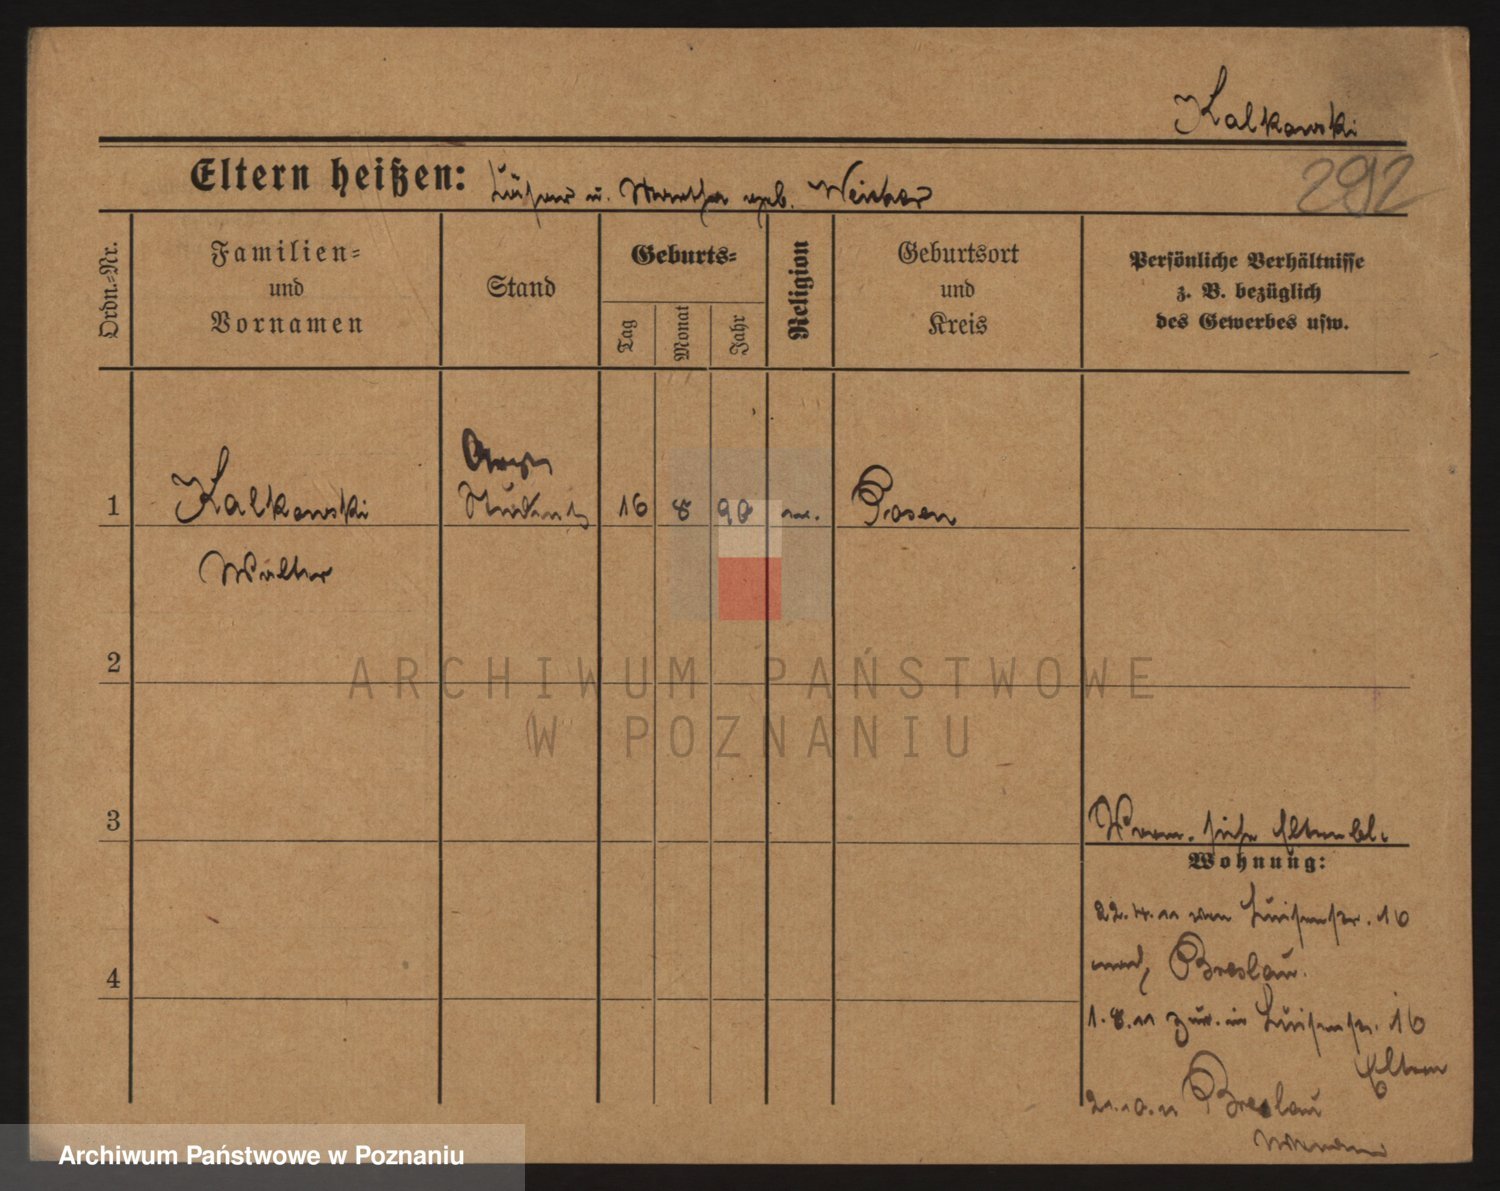 Kalkowski
Eltern heißen: u. Martha geb.
292
Ordn.-Nr.
Familien-
und
Vornamen
Stand
Geburts-
Tag
Monat
Jahr
Religion
Geburtsort
und
Kreis
Persönliche Verhältnisse
z. B. bezüglich
des Gewerbes usw.
1 Kalkowski 16 8 90 Posen
Walter
2
3
siehe Elternbl.
Wohnung:
22.4.11 von Luisenstr. 16
nach Breslau.
4
1.8.11 zur. in Luisenstr. 16
Eltern
Breslau
ARCHIWUM PAŃSTWOWE
W POZNANIU
Archiwum Państwowe w Poznaniu